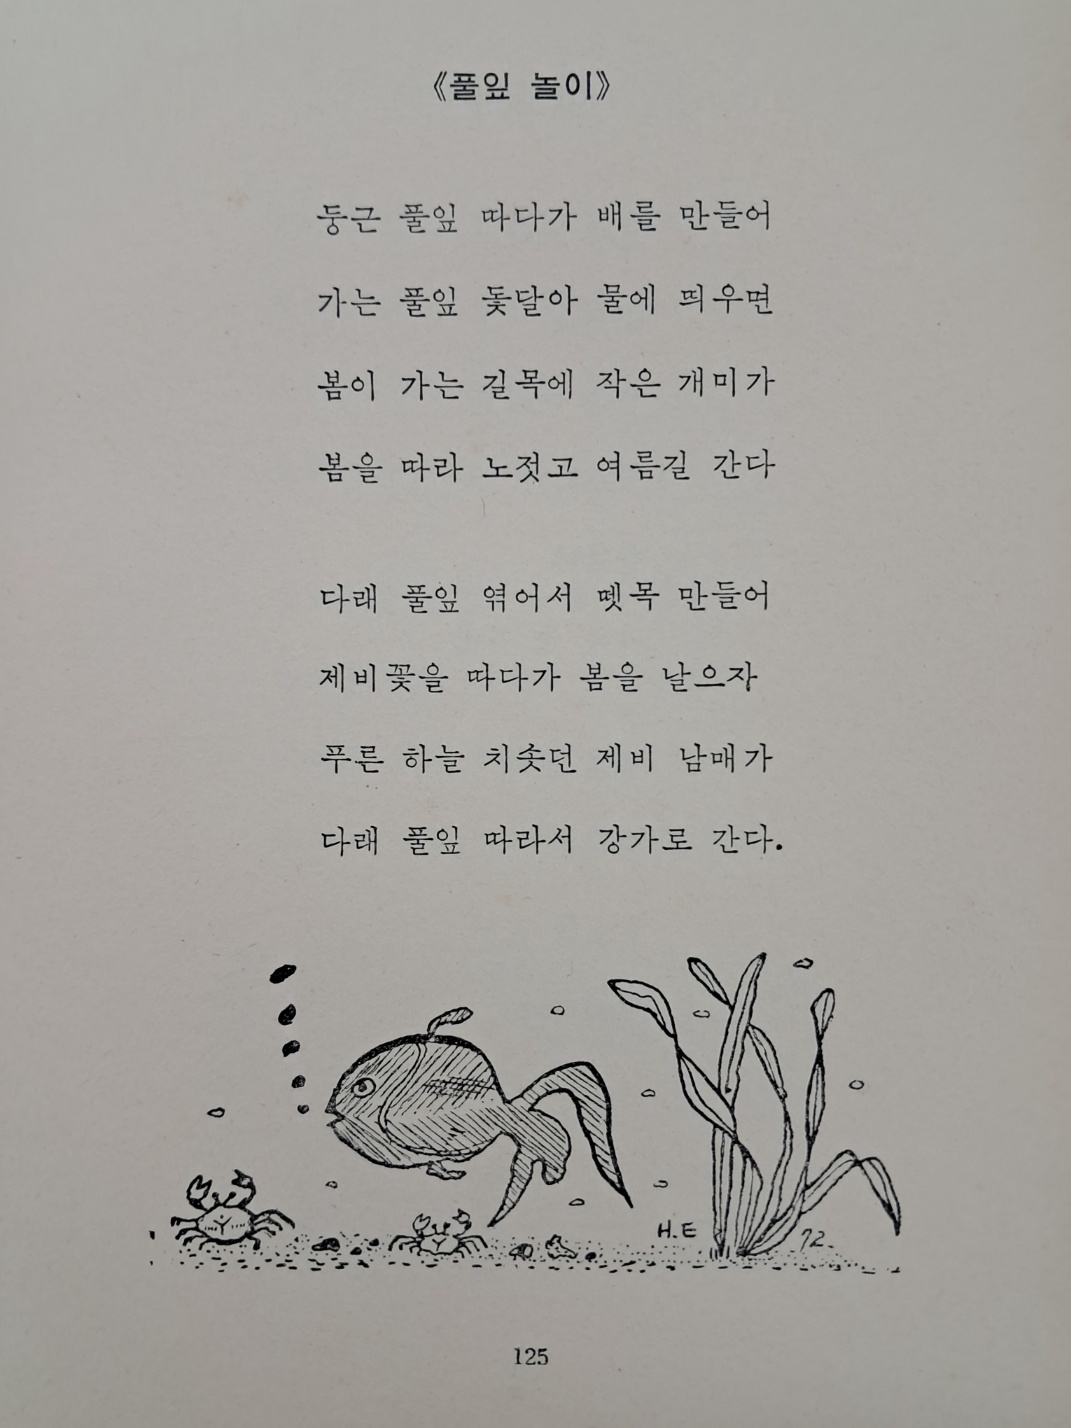 《풀잎 놀이》
둥근 풀잎 따다가 배를 만들어
가는 풀잎 돛달아 물에 띄우면
봄이 가는 길목에 작은 개미가
봄을 따라 노젓고 여름길 간다
다래 풀잎 엮어서 뗏목 만들어
제비꽃을 따다가 봄을 날으자
푸른 하늘 치솟던 제비 남매가
다래 풀잎 따라서 강가로 간다.
H.E 72.
125